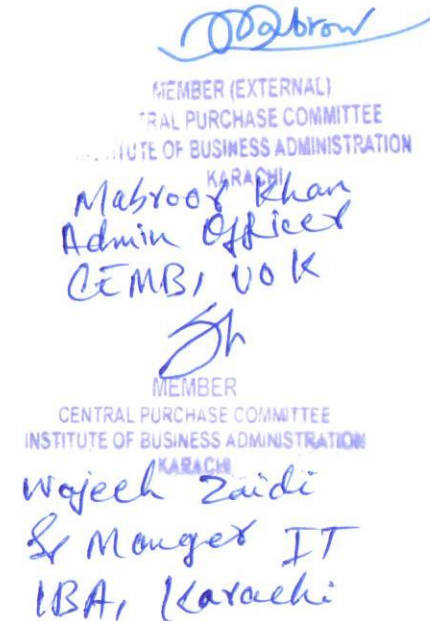 Mabroor
MEMBER (EXTERNAL)
TRAL PURCHASE COMMITTEE
TUTE OF BUSINESS ADMINISTRATION
KARACHI
Mabroor Khan
Admin Officer
CEMB, UOK
MEMBER
CENTRAL PURCHASE COMMITTEE
INSTITUTE OF BUSINESS ADMINISTRATION
KARACHI
Wajeeh Zaidi
Sr Manger IT
IBA, Karachi